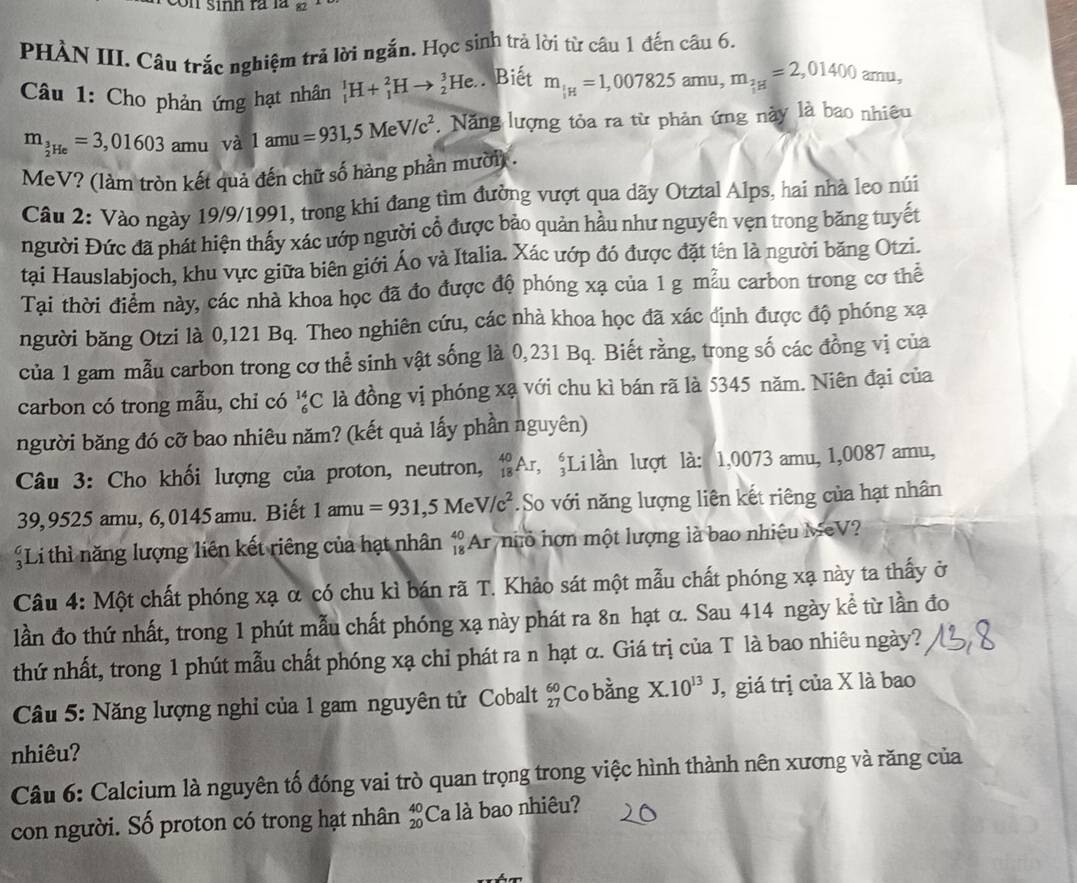 sinh ra là 82
PHẦN III. Câu trắc nghiệm trả lời ngắn. Học sinh trả lời từ câu 1 đến câu 6.
Câu 1: Cho phản ứng hạt nhân ¹₁H + ²₁H → ³₂He. . Biết m ¹₁H = 1,007825 amu, m ²₁H = 2,01400 amu,
m ³₂He = 3,01603 amu và 1 amu = 931,5 MeV/c². Năng lượng tỏa ra từ phản ứng này là bao nhiêu
MeV? (làm tròn kết quả đến chữ số hàng phần mười) .
Câu 2: Vào ngày 19/9/1991, trong khi đang tìm đường vượt qua dãy Otztal Alps, hai nhà leo núi
người Đức đã phát hiện thấy xác ướp người cổ được bảo quản hầu như nguyên vẹn trong băng tuyết
tại Hauslabjoch, khu vực giữa biên giới Áo và Italia. Xác ướp đó được đặt tên là người băng Otzi.
Tại thời điểm này, các nhà khoa học đã đo được độ phóng xạ của 1 g mẫu carbon trong cơ thể
người băng Otzi là 0,121 Bq. Theo nghiên cứu, các nhà khoa học đã xác định được độ phóng xạ
của 1 gam mẫu carbon trong cơ thể sinh vật sống là 0,231 Bq. Biết rằng, trong số các đồng vị của
carbon có trong mẫu, chỉ có ¹⁴₆C là đồng vị phóng xạ với chu kì bán rã là 5345 năm. Niên đại của
người băng đó cỡ bao nhiêu năm? (kết quả lấy phần nguyên)
Câu 3: Cho khối lượng của proton, neutron, ⁴⁰₁₈Ar, ⁶₃Li lần lượt là: 1,0073 amu, 1,0087 amu,
39,9525 amu, 6,0145amu. Biết 1 amu = 931,5 MeV/c².So với năng lượng liên kết riêng của hạt nhân
⁶₃Li thì năng lượng liên kết riêng của hạt nhân ⁴⁰₁₈Ar hơn một lượng là bao nhiêu MeV?
Câu 4: Một chất phóng xạ α có chu kì bán rã T. Khảo sát một mẫu chất phóng xạ này ta thấy ở
lần đo thứ nhất, trong 1 phút mẫu chất phóng xạ này phát ra 8n hạt α. Sau 414 ngày kể từ lần đo
thứ nhất, trong 1 phút mẫu chất phóng xạ chỉ phát ra n hạt α. Giá trị của T là bao nhiêu ngày? 13,8
Câu 5: Năng lượng nghỉ của 1 gam nguyên tử Cobalt ⁶⁰₂₇Co bằng X.10¹³ J, giá trị của X là bao
nhiêu?
Câu 6: Calcium là nguyên tố đóng vai trò quan trọng trong việc hình thành nên xương và răng của
con người. Số proton có trong hạt nhân ⁴⁰₂₀Ca là bao nhiêu? 20